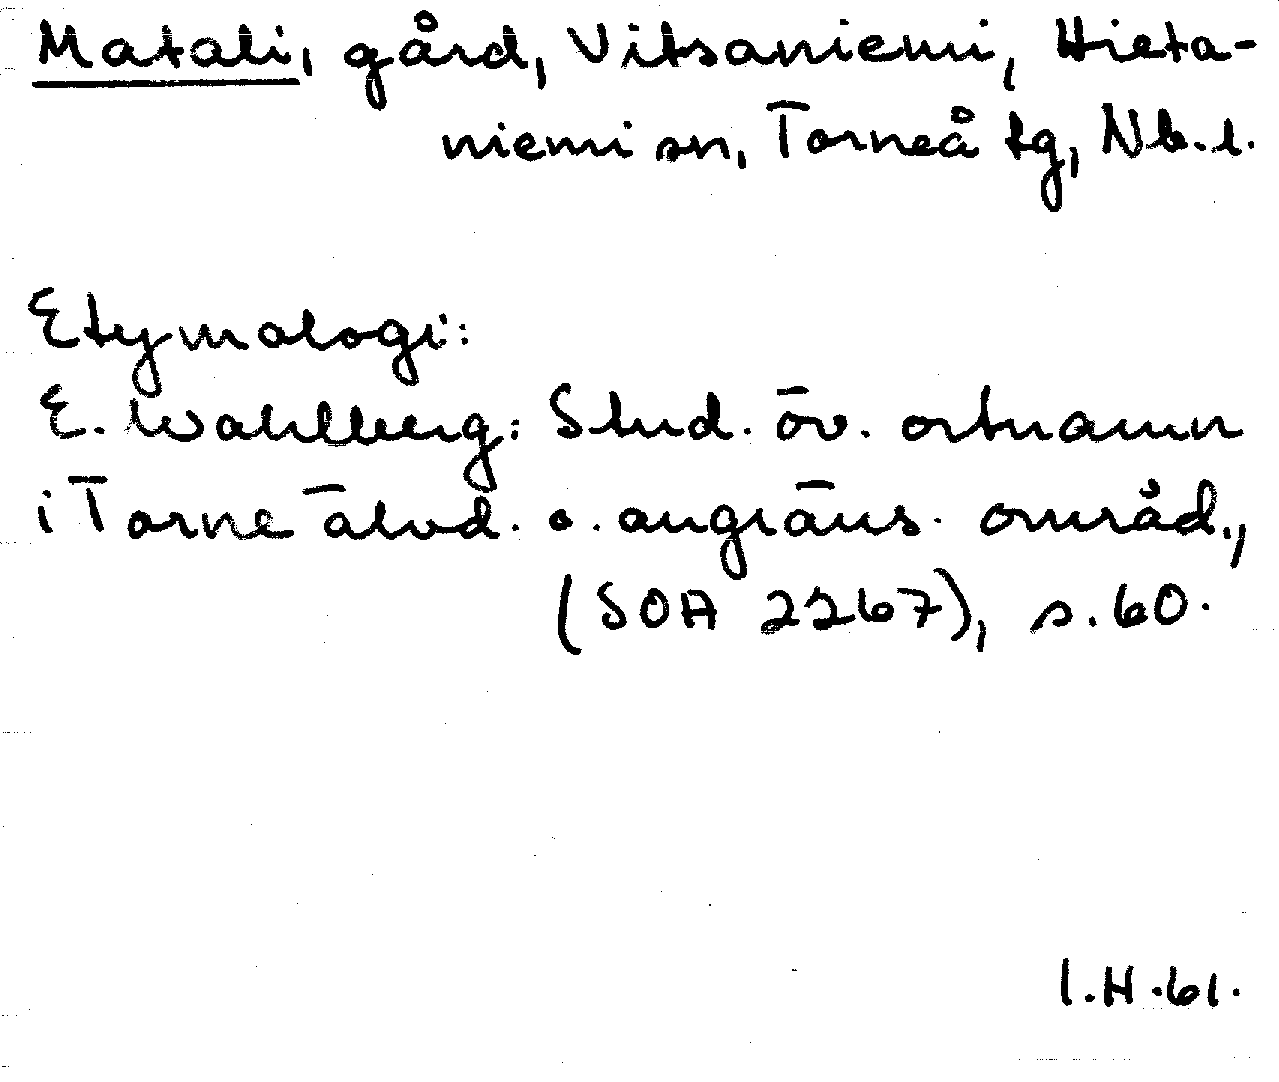 Matali, gård, Vitsaniemi, Hieta-
niemi sn, Torneå tg, Nb.l.
Etymologi:
E. Wahlberg: Stud. öv. ortnamn
i Torne älvd. o. angräns. områd.,
(SOA 2267), s. 60.
I.H.61.